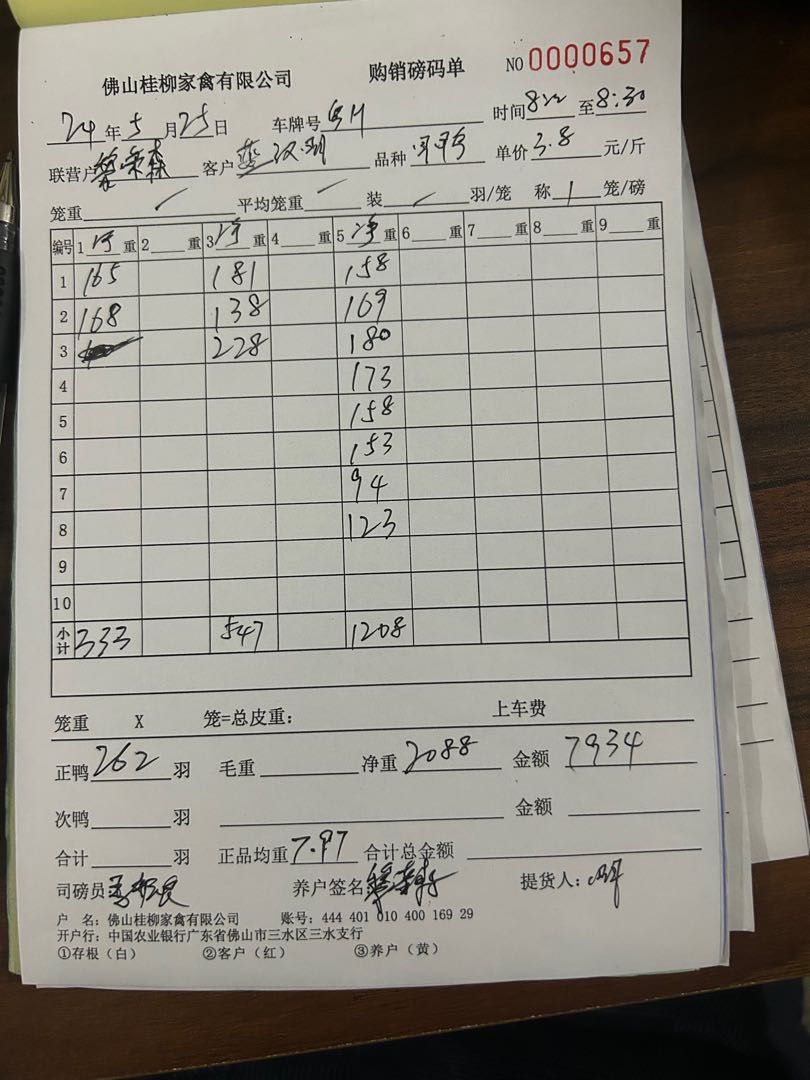 佛山桂柳家禽有限公司 购销磅码单 NO 0000657
24年5月25日 车牌号 时间8:22至8:30
联营户 客户 品种 单价3.8元/斤
笼重 / 平均笼重 / 装 / 羽/笼 称1笼/磅
编号 1净重 2重 3净重 4重 5净重 6重 7重 8重 9重
1 165 181 158
2 168 138 169
3 228 180
4 173
5 158
6 153
7 94
8 123
9
10
小计 333 547 1208
笼重 X 笼=总皮重: 上车费
正鸭262羽 毛重 净重2088 金额7934
次鸭 羽 金额
合计 羽 正品均重7.97 合计总金额
司磅员 养户签名 提货人:
户 名: 佛山桂柳家禽有限公司 账号: 444 401 010 400 169 29
开户行: 中国农业银行广东省佛山市三水区三水支行
①存根(白) ②客户(红) ③养户(黄)